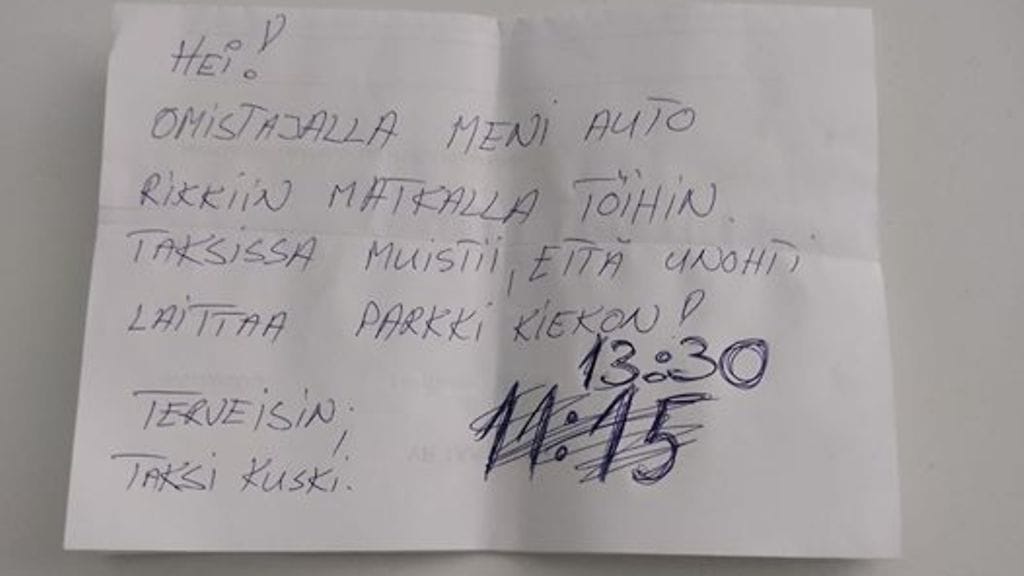 HEI!
OMISTAJALLA MENI AUTO
RIKKIIN MATKALLA TÖIHIN.
TAKSISSA MUISTII, ETTÄ UNOHTI
LAITTAA PARKKI KIEKON!
13:30
11:15
TERVEISIN;
TAKSI KUSKI.